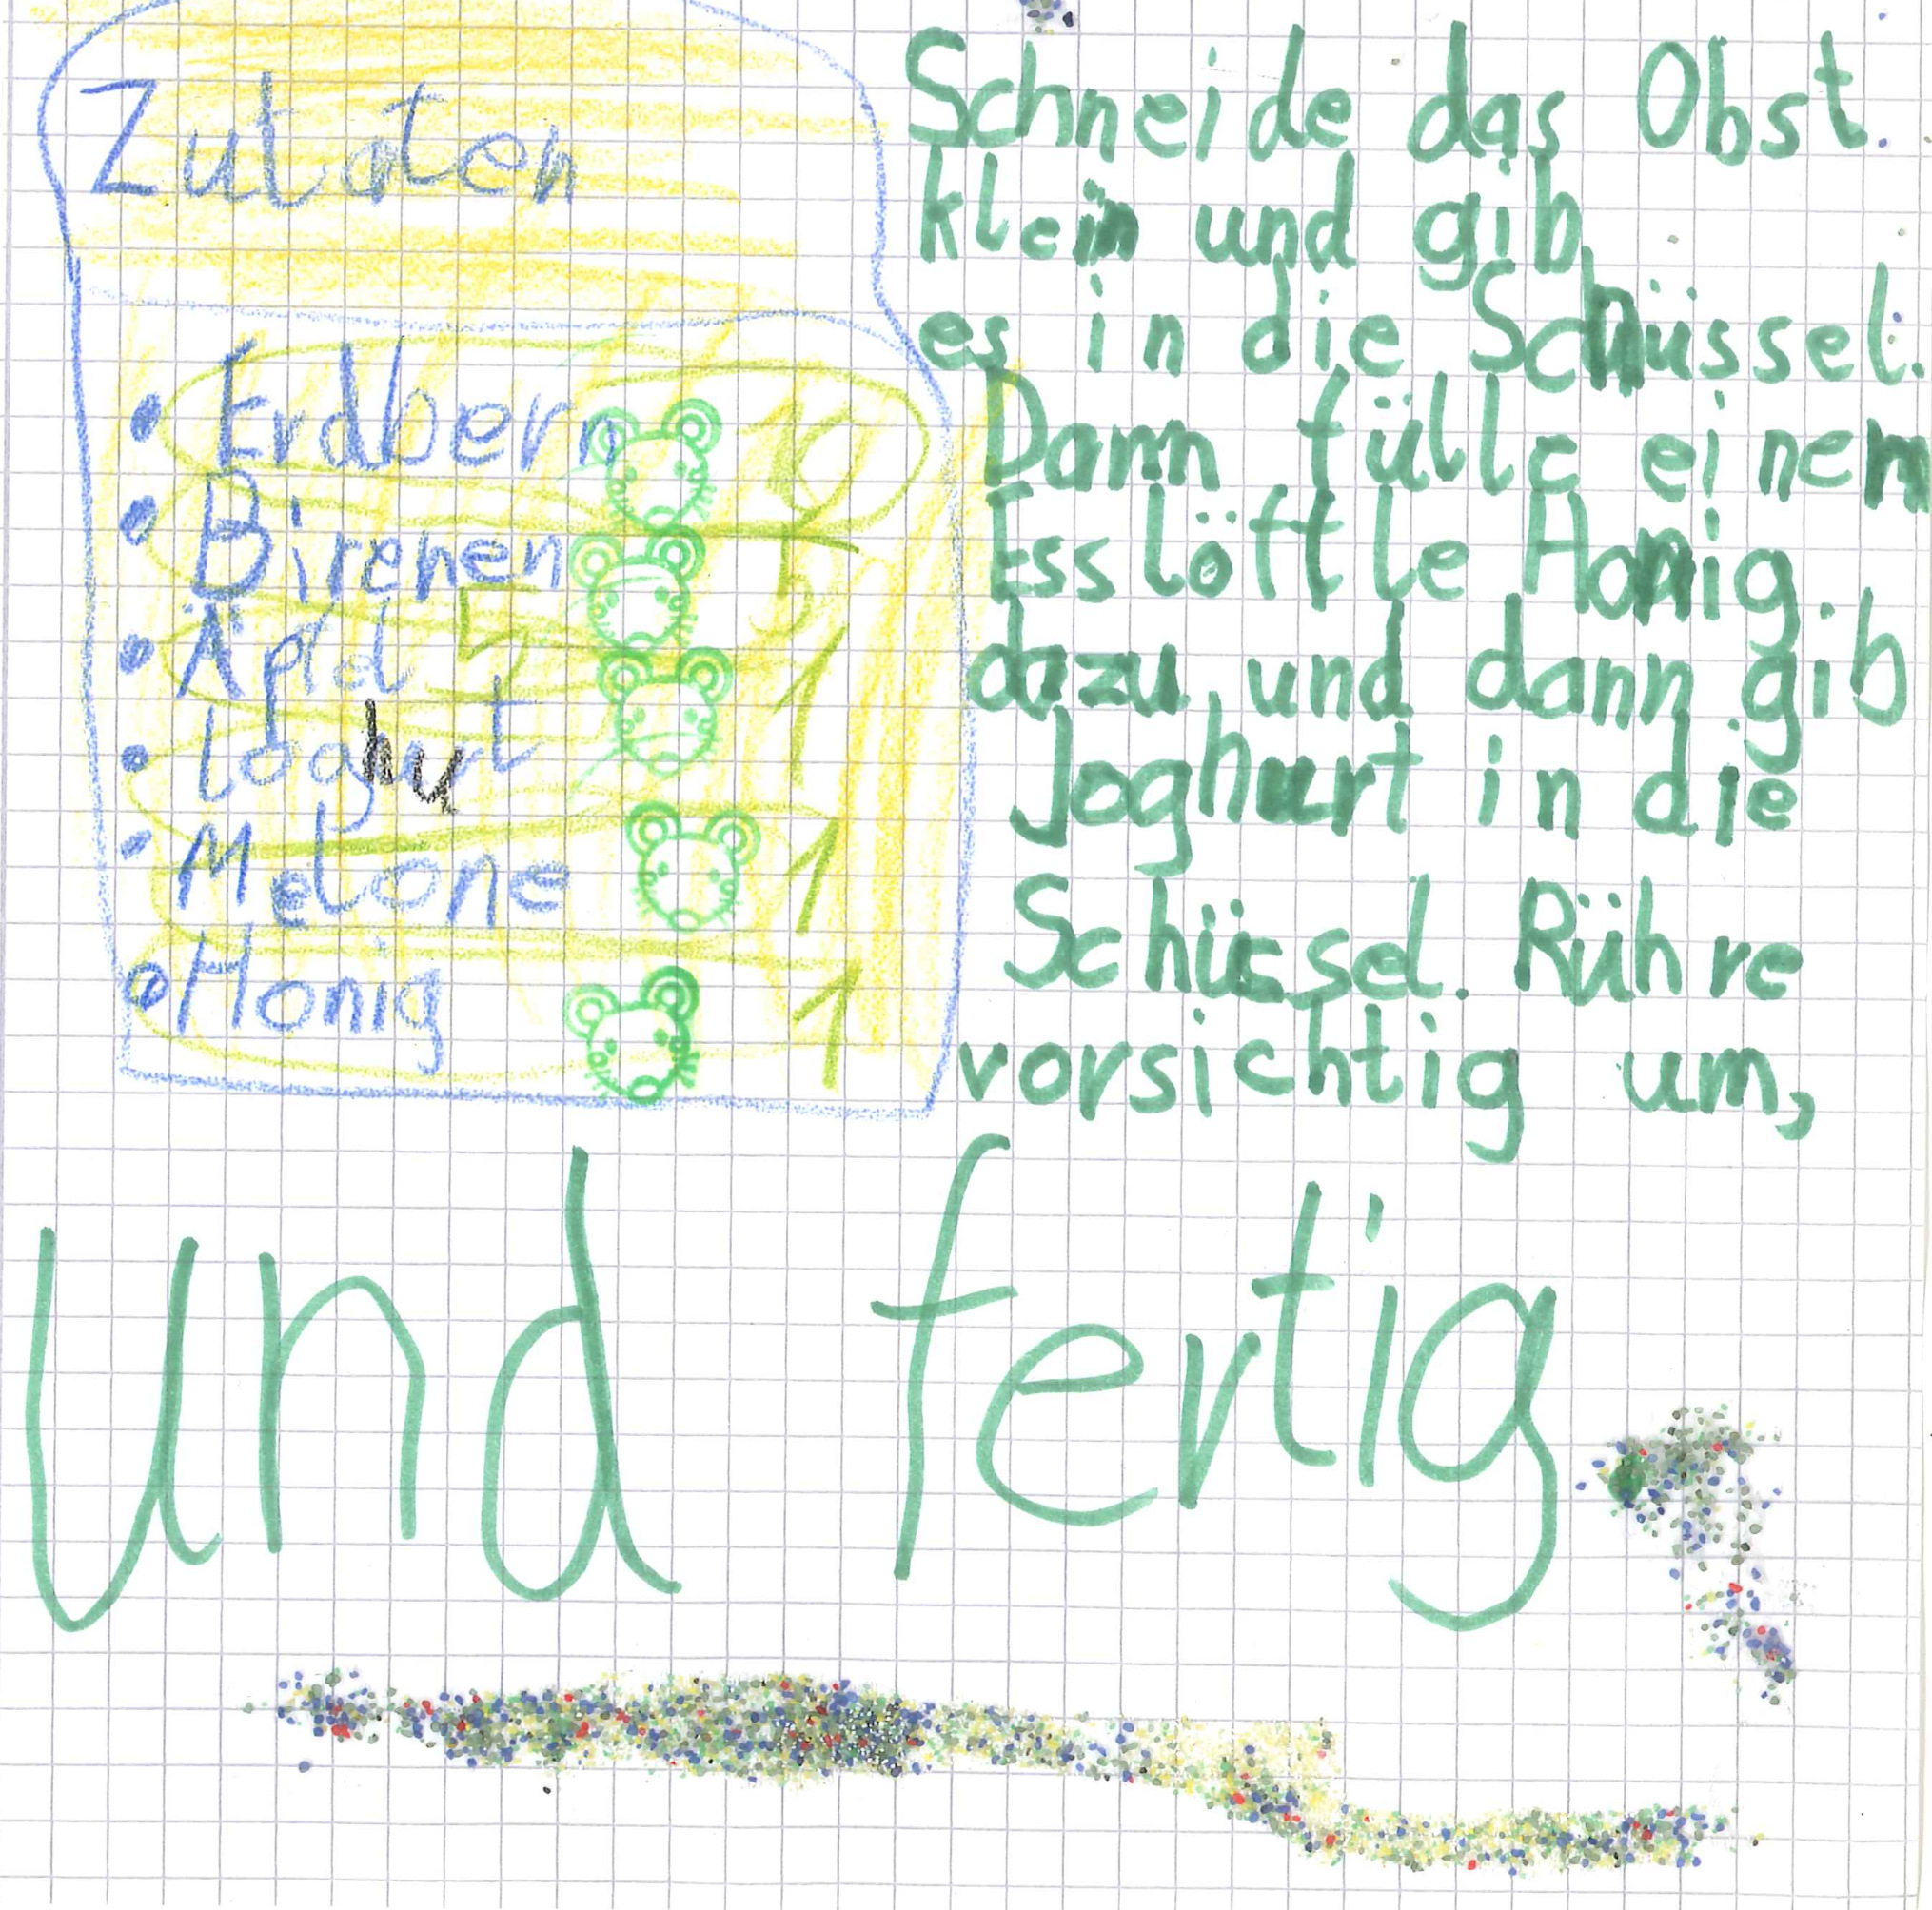 Zutaten
• Erdbern 10
• Birenen 5
• Äpfel 5 1
• Joghut
• Melone 1
• Honig 1
Schneide das Obst.
klein und gib
es in die Schüssel.
Dann fülle einem
Esslöffle Honig
dazu, und dann gib
Joghurt in die
Schüssel. Rühre
vorsichtig um,
Und fertig